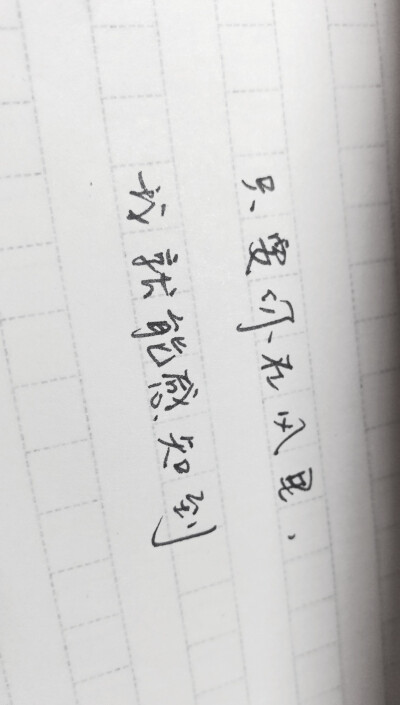 只要你在风里，
我就能感知到